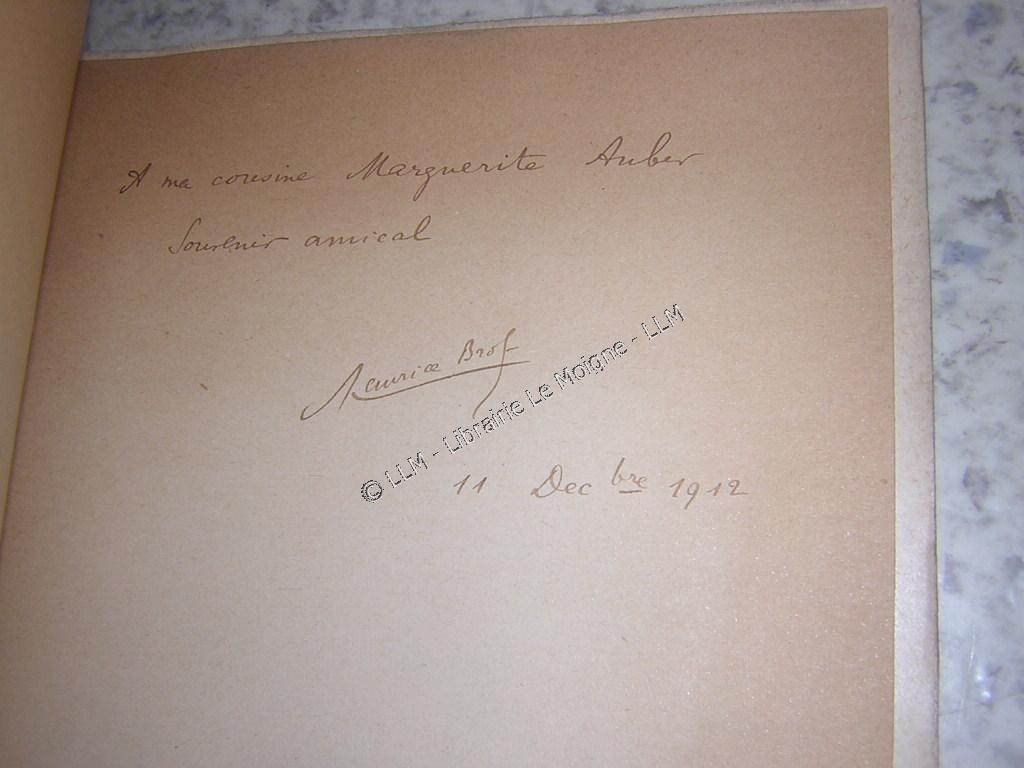 A ma cousine Marguerite Auber
Souvenir amical
Maurice Brof
© LLM - Librairie Le Moigne - LLM
11 Decbre 1912